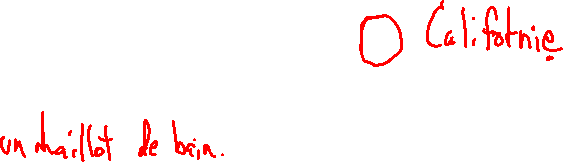 Californie
un maillot de bain.